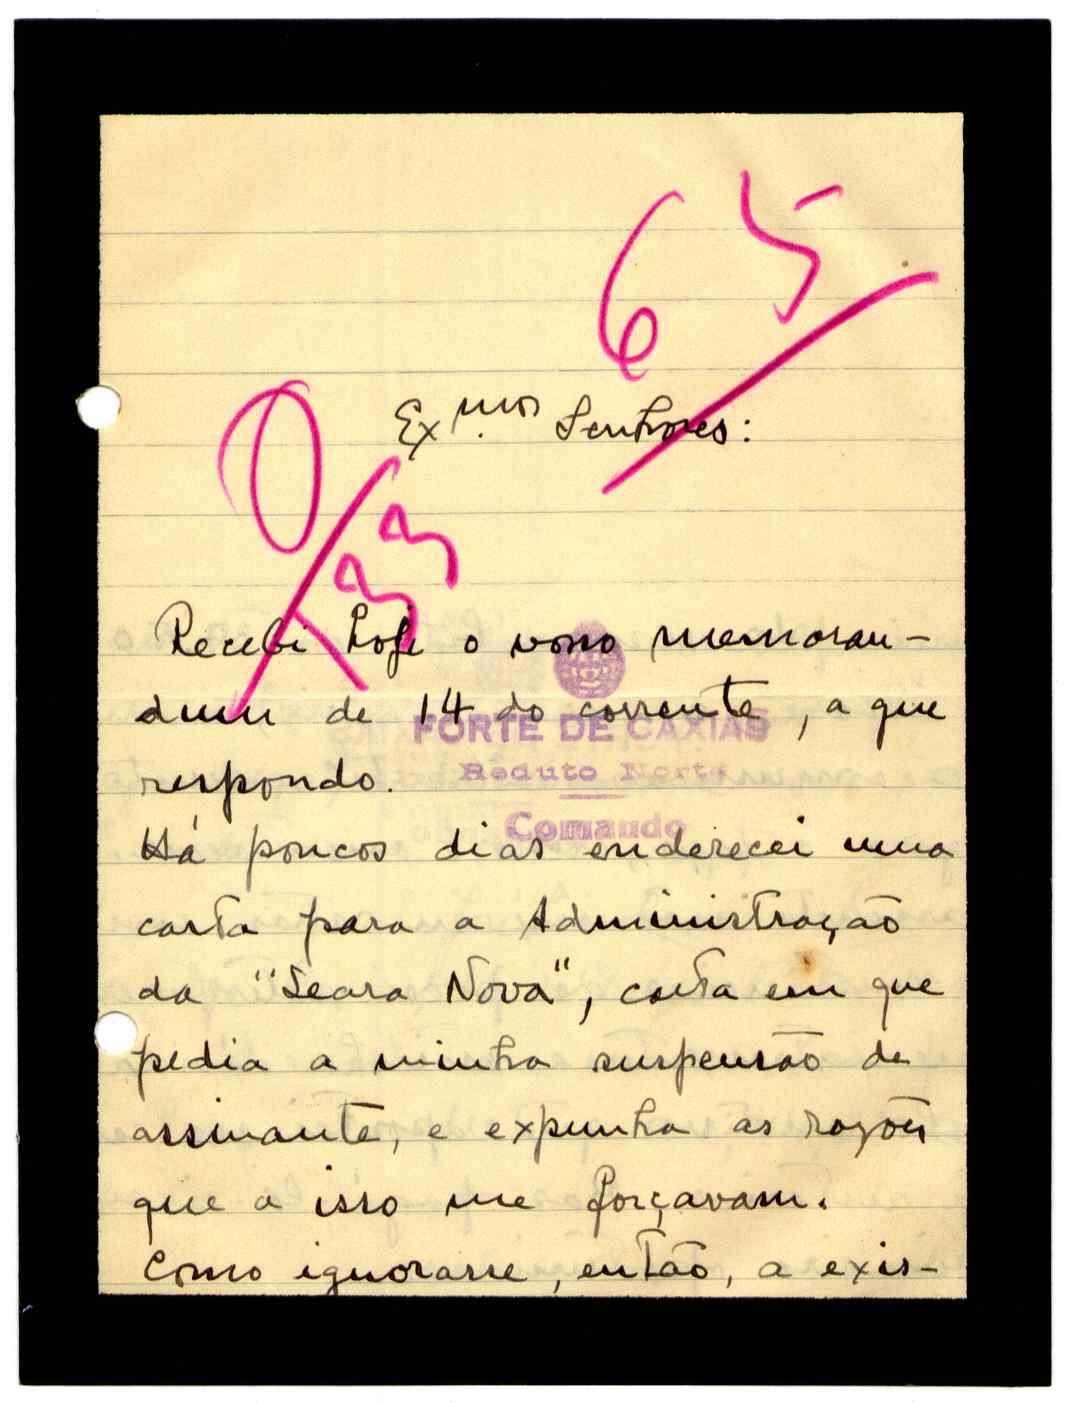 65
Ex.mos Senhores:
0/33
Recebi hoje o vosso memoran-
dum de 14 do corrente, a que
FORTE DE CAXIAS
Reduto Norte
respondo.
Comando
Há poucos dias enderecei uma
carta para a Administração
da "Seara Nova", carta em que
pedia a minha suspensão de
assinante, e expunha as razões
que a isso me forçavam.
Como ignorasse, então, a exis-